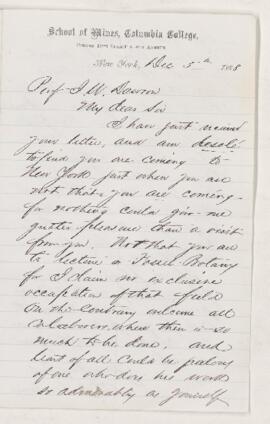 School of Mines, Columbia College,
New York, Dec 5th 1868
Prof J. W. Dawson
My dear Sir
I have just received
your letter, and am desolé
to find you are coming to
New York just when you are
Not that you are coming—
for nothing could give me
greater pleasure than a visit
from you. Not that you are
to lecture on Fossil Botany
for I claim no exclusive
occupation of that field
On the contrary welcome all
colaborers where there is so
much to be done, and
least of all could be jealous
of one who does his work
so admirably as yourself